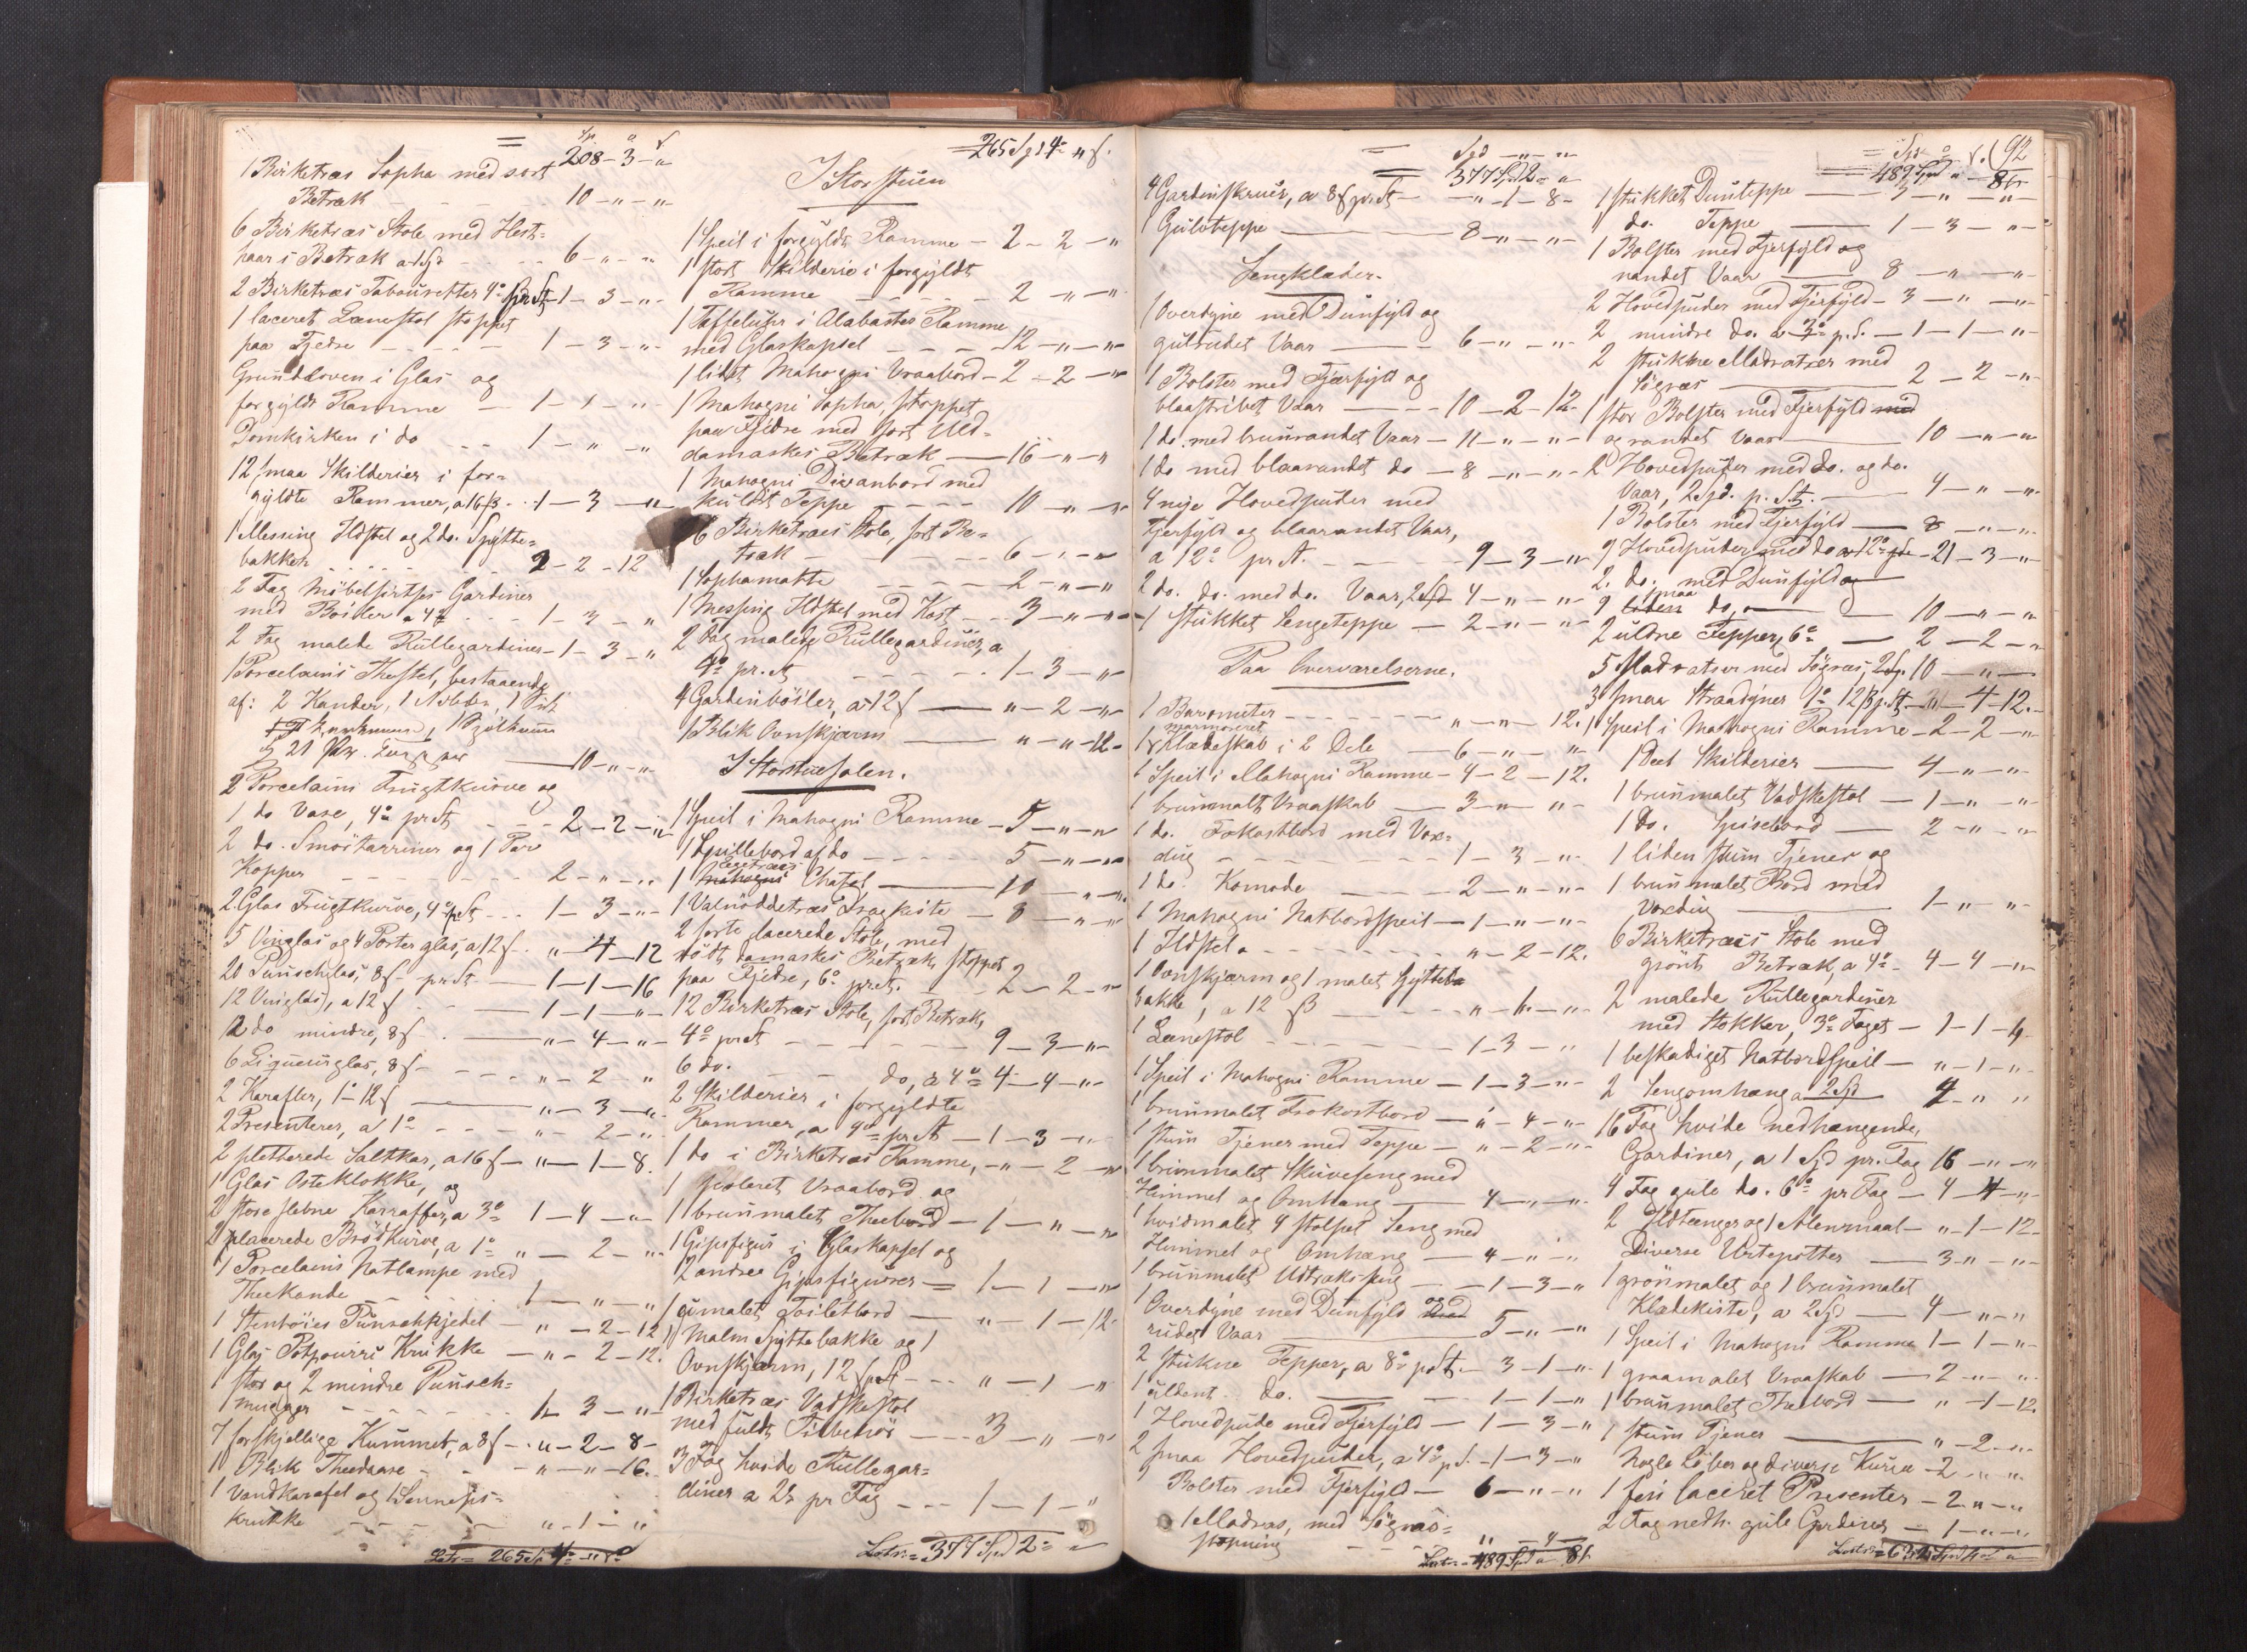 = Sp ₒ ſ
208 - 3 - "
1 Birketræs Sopha med sort
Betræk - - - 10 - " - "
6 Birketræs Stole med Heste-
haar i Betræk a 1 Spd - - - 6 - " - "
2 Birketræs Tabouretter 4º pr St - 1 - 3 - "
1 laceret Lænestol stoppet
paa Fjedre - - - 1 - 3 - "
Grundloven i Glas og
forgyldt Ramme - 1 - 1 - "
Domkirken i do - - - 1 - " - "
12 smaa Skilderier i for-
gyldte Rammer, a 16 ß - 1 - 3 - "
1 Messing Ildstel og 2 do. Spytte-
bakker - - - 2 - 2 - 12
2 Fag Möbelsirtses Gardiner
med Böiler a 4º - - - 1 - 3 - "
2 Fag malede Rullegardiner - 1 - 3 - "
1 Porcelains Thestel, bestaaende
af: 2 Kander, 1 Asiet, 1 Fad
1 Spölkum
21 Par
- 10 - " - "
2 Porcelains Frugtkurve og
1 do Vase, 4º pr St - - - 2 - 2 - "
2 do. Smörtarriner og 1 Par
Kopper - - - 2 - " - "
2 Glas Frugtkurve, 4º pr St - - - 1 - 3 - "
5 Vinglas og 4 Porter glas, a 12 ſ - " - 4 - 12
20 Punschglas, 8 ſ pr St - 1 - 1 - 16
12 Vinglas, a 12 ſ - 1 - 1 - "
12 do mindre, 8 ſ - " - 4 - "
6 Liqueurglas, 8 ſ - - - " - 2 - "
2 Karafler, 1 - 12 ſ - " - 3 - "
2 Presenterer, a 1º - - - " - 2 - "
2 pletterede Saltkar, a 16 ſ - " - 1 - 8.
1 Glas Osteklokke, og
2 store slebne Karaffer, a 3º 1 - 4 - "
2 placerede Brödkurve, a 1º " - 2 - "
1 Porcelains Natlampe med
Theekande - - - 1 - " - "
1 Stentöies Punschkjedel - " - 2 - 12
1 Glas Potpourri Krukke - " - 2 - 12.
1 stor og 2 mindre Punsch-
mugger - - - 1 - 3 - "
7 forskjellige Kummer, a 8 ſ - " - 2 - 8 -
1 Blik Theedaase - - - " - " - 16.
1 Vandkarafel og 1 Senneps-
krukke - - - " - 1 - "
Latr = 265 Sp 4º " ſ
= 265 Spd 4º " ſ.
I Storstuen
1 Speil i forgyldt Ramme - 2 - 2 - "
1 stort Skilderie i forgyldt
Ramme - - - 2 - " - "
1 Taffeluhr i Alabaster Ramme
med Glaskapsel - - - 12 - " - "
1 lidet Mahogni Vraabord - 2 - 2 - "
1 Mahogni Sopha, stoppet
paa Fjedre med sort Uld-
damaskes Betræk - 16 - " - "
1 Mahogni Divanbord med
kuldt Teppe - - - 10 - " - "
6 Birketræes Stole, sort Be-
træk - - - 6 - " - "
1 Sophamatte - - - 2 - " - "
1 Messing Ildstel med Kost - - 3 - " - "
2 Fag malede Rullegardiner, a
4º pr. St - - - 1 - 3 - "
4 Gardinböiler, a 12 ſ - " - 2 - "
1 Blik Ovnskjærm - " - " - 12 -
I Storstuesalen.
1 Speil i Mahogni Ramme - 5 - " - "
1 Spillebord af do - - - 5 - " - "
1 Chatol - 10 - " - "
1 Valnöddetræs Dragkiste - 8 - " - "
2 sorte lacerede Stole, med
rödt damaskes Betræk, stoppet
paa Fjedre, 6º pr St. - 2 - 2 - "
12 Birketræs Stole, sort Betræk,
4º pr St - - - 9 - 3 - "
6 do. - - do, a 4º 4 - 4 - "
2 Skilderier i forgyldte
Rammer, a 4º pr St - 1 - 3 - "
1 do i Birketræs Ramme, - " - 2 - "
1 poleret Vraabord og
1 brunmalet Theebord - 1 - " - "
1 Gipsfigur i Glaskapsel og
2 andre Gipsfigurer = 1 - 1 - "
1 umalet Toiletbord - " - 1 - 12.
1 Malm Spyttebakke og 1
Ovnskjærm, 12 ſ p. St - - - " - 1 - "
1 Birketræs Vadskestol
med fuldt Tilbehör - - - 3 - " - "
3 Fag hvide Rullegar-
diner a 2º pr Fag - - - 1 - 1 - "
Latr = 377 Spd 2º "
= Spd " "
377 Spd 2 - "
4 Gardinskruer, a 8 ſ pr. St - " - 1 - 8 -
1 Gulvteppe - 8 - " - "
Sengklæder.
1 Overdyne med Dunfyld og
gulrudet Vaar - 6 - " - "
1 Bolster med Fjærfyld og
blaastribet Vaar - - - 10 - 2 - 12
1 do. med brunrandet Vaar - 11 - " - "
1 do med blaarandet do - 8 - " - "
4 nye Hovedpuder med
Fjerfyld og blaarandet Vaar,
a 12º pr St. - - - 9 - 3 - "
2 do. do. med do. Vaar, 2 Spd 4 - " - "
1 stukket Sengeteppe - 2 - " - "
Paa Overværelserne.
1 Barometer - - - " - " - 12.
1 Klædeskab i 2 Dele - 6 - " - "
1 Speil i Mahogni Ramme - 4 - 2 - 12.
1 brunmalt Vraaskab - 3 - " - "
1 do. Frokostbord med Vox-
dug - - - 1 - 3 - "
1 do. Komode - - - 2 - " - "
1 Mahogni Natbordspeil - 1 - " - "
1 Ildstel - - - " - 2 - 12.
1 Ovnskjærm og 1 malet Spytte-
bakke, a 12 ß - - - " - 1 - "
1 Lænestol - - - 1 - 3 - "
1 Speil i Mahogni Ramme - 1 - 3 - "
1 brunmalet Frokostbord - " - 4 - "
1 stum Tjener med Teppe - " - 2 - "
1 brunmalet Skuveseng med
Himmel og Omhang - 4 - " - "
1 hvidmalet 4 stolpet Seng med
Himmel og Omhæng - 4 - " - "
1 brunmalet Udtræksseng - 1 - 3 - "
1 Overdyne med Dunfyld og
rudet Vaar - 5 - " - "
2 stukne Tepper, a 8º p. St. - 3 - 1 - "
1 uldent do. - 1 - 1 - "
1 Hovedpude med Fjerfyld - 1 - 3 - "
2 smaa Hovedpuder, a 4º p. S. - 1 - 3 - "
1 Bolster med Fjerfyld - 6 - " - "
1 Madras, med Sögræs-
stopning - - - " - 4 -
Latr = 489 Spd " 8 ſ
= Spd ₒ ſ. (92
489 Spd " - 8 ſ
1 stukket Dunteppe - 3 - " - "
1 do. Teppe - 1 - 3 - "
1 Bolster med Fjerfyld og
randet Vaar - 8 - " - "
2 Hovedpuder med Fjerfyld - 3 - " - "
2 mindre do. a 3º p. S. - 1 - 1 - "
2 stukne Madratser med
Sögræs - 2 - 2 - "
1 stor Bolster med Fjerfyld med
og randet Vaar - 10 - " - "
2 Hovedputer med do. og do.
Vaar, 2 Spd. p. St. - 4 - " - "
1 Bolster med Fjerfyld - 8 - " - "
9 Hovedputer med do a 12º - 21 - 3 - "
2. do. med Dunfyld og
9 smaa do, - 10 - " - "
2 uldne Tepper, 6º - 2 - 2 - "
5 Madratser med Sögræs, 2 Sp. 10 - " -
3 smaa Straadyner 1º 12 ß p. St. - " - 4 - 12.
1 Speil i Mahogni Ramme - 2 - 2 - "
1 Deel Skilderier - 4 - " - "
1 brunmalet Vadskestol - 1 - " - "
1 do. Spisebord - 2 - " - "
1 liden stum Tjener og
1 brunmalet Bord med
Voxdug - 1 - " - "
6 Birketræes Stole med
grönt Betræk, a 4º - 4 - 4 - "
2 malede Rullegardiner
med Stokker, 3º Faget - 1 - 1 - "
1 beskadiget Natbordspeil - " - 1 - "
2 Sengomhæng a 2 Spd 4 - " "
16 Fag hvide nedhængende,
Gardiner, a 1 Spd pr. Fag 16 - " - "
4 Fag gule do. 6º pr Fag - 4 - 4 - "
2 Ildtænger og 1 Alenmaal - " - 1 - 12 -
Diverse Urtepotter - 3 - " - "
1 grönmalet og 1 brunmalet
Klædekiste, a 2 Spd - 4 - " - "
1 Speil i Mahogni Ramme 1 - 1 - "
1 graamalet Vraaskab - 2 - " - "
1 brunmalet Theebord - " - 1 - 12.
1 stum Tjener - " - 2 - "
Nogle Löber og diverse Kurve - 2 - " - "
1 fin laceret Presenter - 2 - " - "
2 Fag nedh. gule Gardiner - 1 - " - "